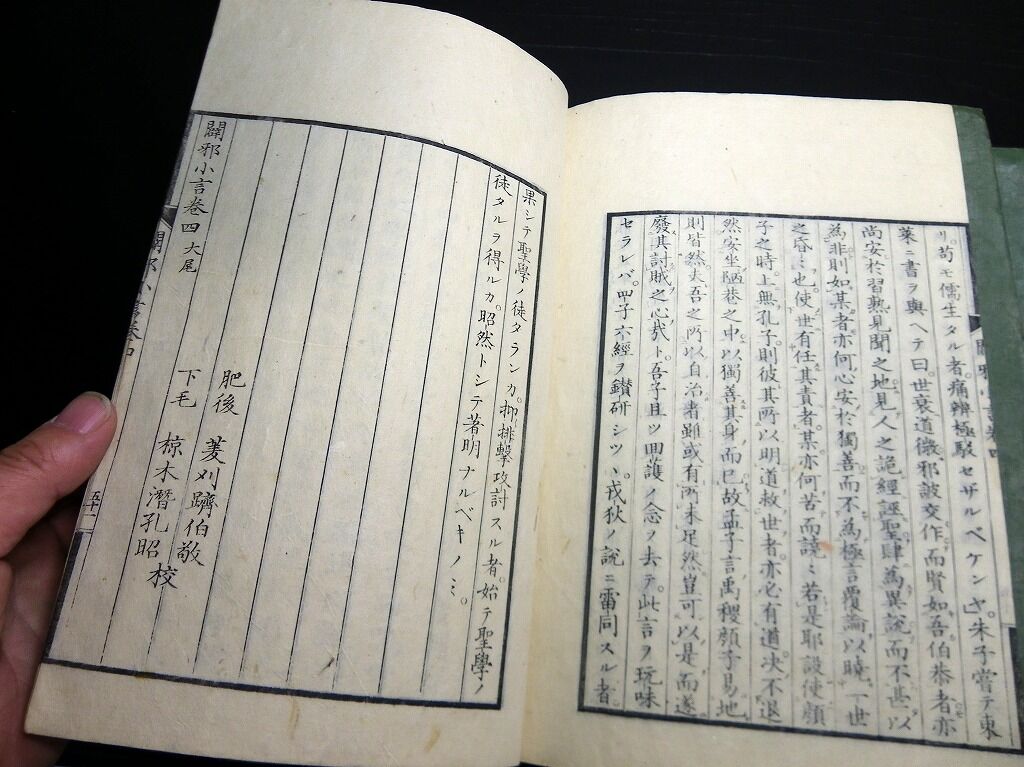 リ。苟モ儒生タル者。痛辨極駁セザルベケンヤ。」朱子嘗テ東
萊ニ書ヲ與ヘテ曰。世衰道微。邪詖交作。而賢如吾伯恭者。亦
尚安於習熟見聞之地。見人之詭經誣聖。肆為異說而不甚以
為非。則如某者。亦何心安於獨善。而不為極言覆論。以曉一世
之昏ミ也。使世有任其責者。某亦何苦而說ミ若是耶。設使顏
子之時。上無孔子。則彼其所以明道救世者。亦必有道。决不退
然安坐陋巷之中。以獨善其身而已。故孟子言。禹稷顏子易地
則皆然。夫吾之所以自治者。雖或有所未足。然豈可以是而遂
廢其討賊之心哉ト。吾子且ツ回護ノ念ヲ去テ。此言ヲ玩味
セラレバ。四子六經ヲ鑚研シツヽ。戎狄ノ說ニ雷同スル者。
闢邪小言卷四
果シテ聖學ノ徒タランカ。抑排擊攻討スル者。始テ聖學ノ
徒タルヲ得ルカ。昭然トシテ著明ナルベキノミ。
肥後 菱刈躋伯敬
下毛 椋木潛孔昭校
闢邪小言卷四大尾
闢邪小言卷四
五十一